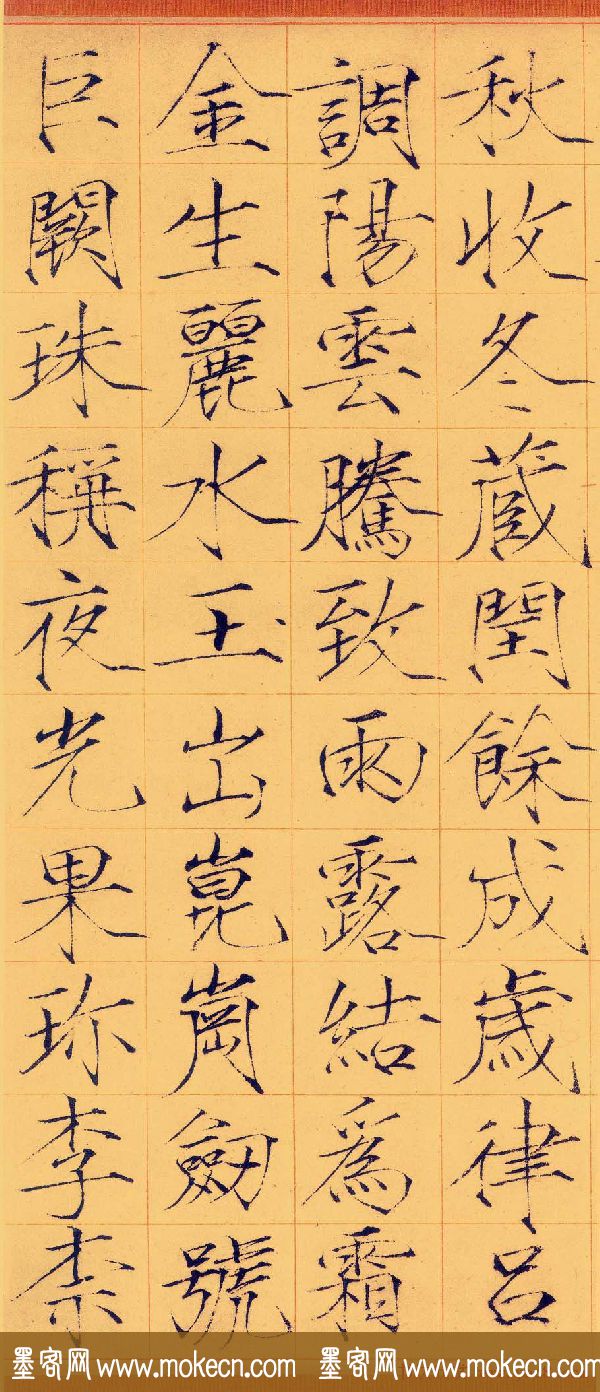 秋收冬蔵閏餘成歲律呂
調陽雲騰致雨露結爲霜
金生麗水玉出崑崗劍號
巨闕珠稱夜光果珎李柰
墨客网 www.mokecn.com 墨客网 www.mokecn.com